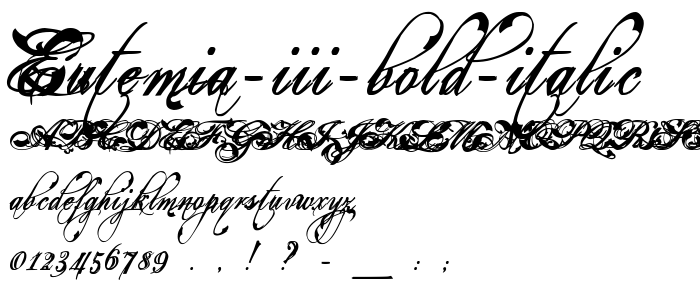 Eutemia-iii-bold-italic
ABCDEFGHIJKLMNOPQRS
abcdefghijklmnopqrstuvwxyz
0123456789 . , ! ? - _ : ;